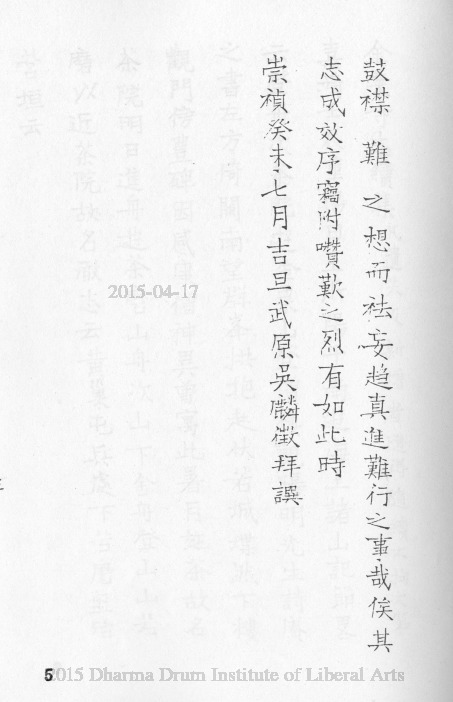 鼓襟　難　之想而袪妄趋真進難行之事哉俟其
志成效序竊附囋歎之烈有如此時
崇禎癸未七月吉旦武原吳麟徵拜譔
2015-04-17
5
2015 Dharma Drum Institute of Liberal Arts